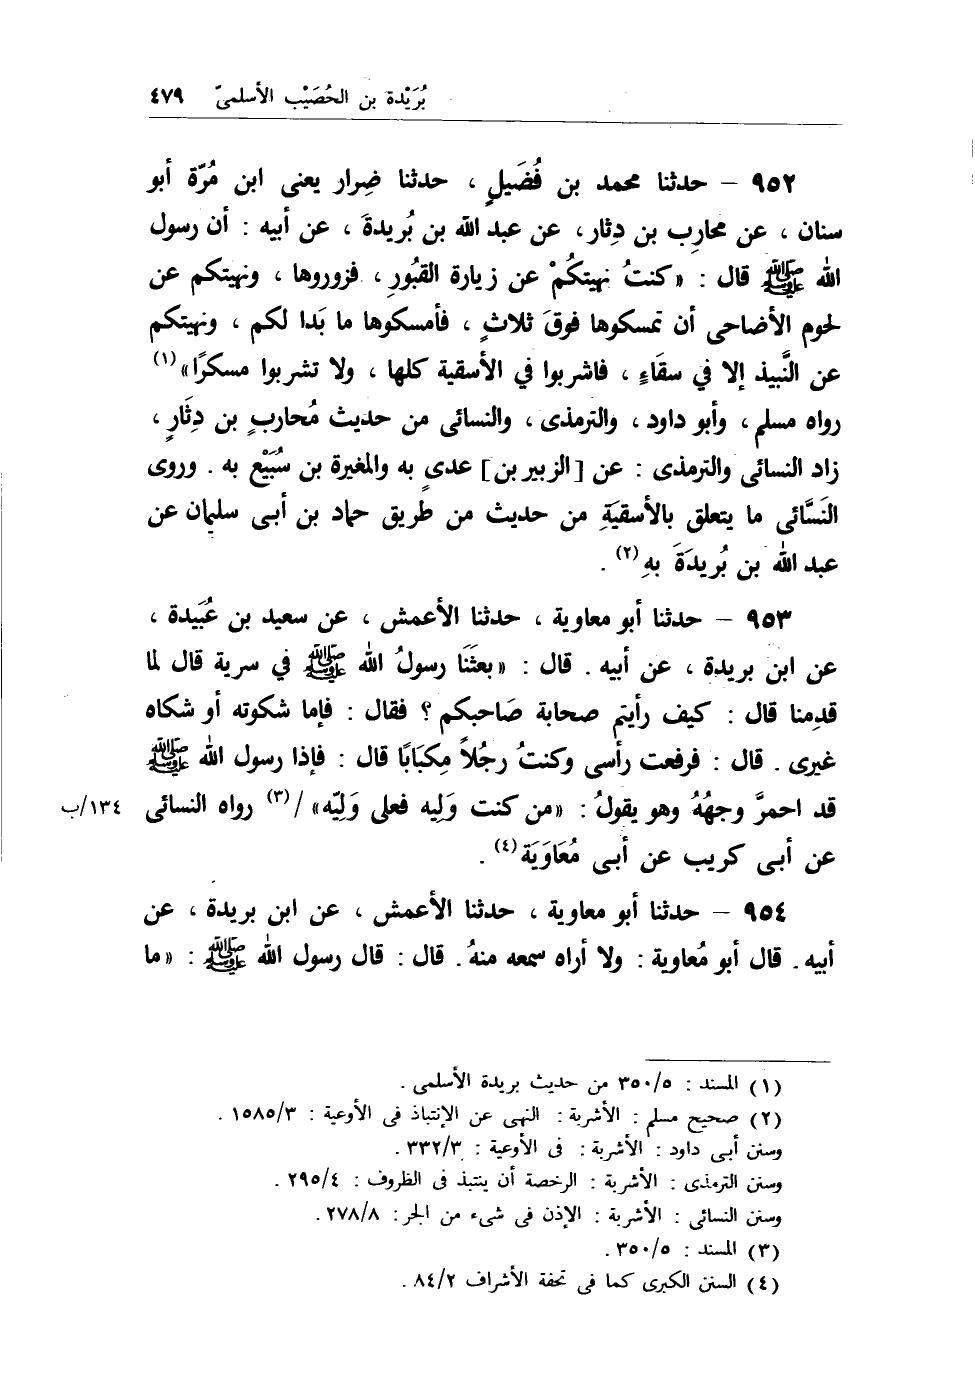 بُرَيْدة بن الحُصَيْب الأسلمىّ ٤٧٩
٩٥٢ – حدثنا محمد بن فُضَيلٍ ، حدثنا ضِرار يعنى ابن مُرّة أبو
سنان ، عن محارِب بن دِثار، عن عبد الله بن بُريدةَ ، عن أبيه : أن رسول
الله ﷺ قال : «كنتُ نهيتكُمْ عن زيارة القبُورِ ، فزوروها ، ونهيتكم عن
لحوم الأضاحى أن تمسكوها فوقَ ثلاثٍ ، فأمسكوها ما بَدا لكم ، ونهيتكم
عن النَّبيذ إلا في سقَاءٍ ، فاشربوا في الأسقية كلها ، ولا تشربوا مسكرًا»(١)
رواه مسلم ، وأبو داود ، والترمذى ، والنسائى من حديث مُحاربٍ بن دِثَارٍ ،
زاد النسائى والترمذى : عن [الزبير بن] عدىٍ به والمغيرة بن سُبَيْع به . وروى
النَسَّائى ما يتعلق بالأسقيَةِ من حديث من طريق حماد بن أبى سليمان عن
عبد الله بن بُريدَةَ بهِ(٢) .
٩٥٣ – حدثنا أبو معاوية ، حدثنا الأعمش ، عن سعيد بن عُبَيدة ،
عن ابن بريدة ، عن أبيه . قال : «بعثَنَا رسولُ الله ﷺ في سرية قال لما
قدِمنا قال : كيف رأيتم صحابة صَاحبكم ؟ فقال : فإما شكوته أو شكاه
غيرى . قال : فرفعت رأسى وكنتُ رجُلاً مِكبَابًا قال : فإذا رسول الله ﷺ
قد احمرَّ وجهُهُ وهو يقولُ : «من كنت وَليه فعلى وَليّه» /(٣) رواه النسائى ١٣٤/ب
عن أبى كريب عن أبى مُعَاوَيَة(٤) .
٩٥٤ – حدثنا أبو معاوية ، حدثنا الأعمش ، عن ابن بريدة ، عن
أبيه . قال أبو مُعاوية : ولا أراه سمعه منهُ . قال : قال رسول الله ﷺ : «ما
(١) المسند : ٣٥٠/٥ من حديث بريدة الأسلمى .
(٢) صحيح مسلم : الأشربة : النهى عن الإنتباذ فى الأوعية : ١٥٨٥/٣ .
وسنن أبى داود : الأشربة : فى الأوعية : ٣٣٢/٣ .
وسنن الترمذى : الأشربة : الرخصة أن ينتبذ فى الظروف : ٢٩٥/٤ .
وسنن النسائى : الأشربة : الإذن فى شىء من الجر : ٢٧٨/٨ .
(٣) المسند : ٣٥٠/٥ .
(٤) السنن الكبرى كما فى تحفة الأشراف ٨٤/٢ .